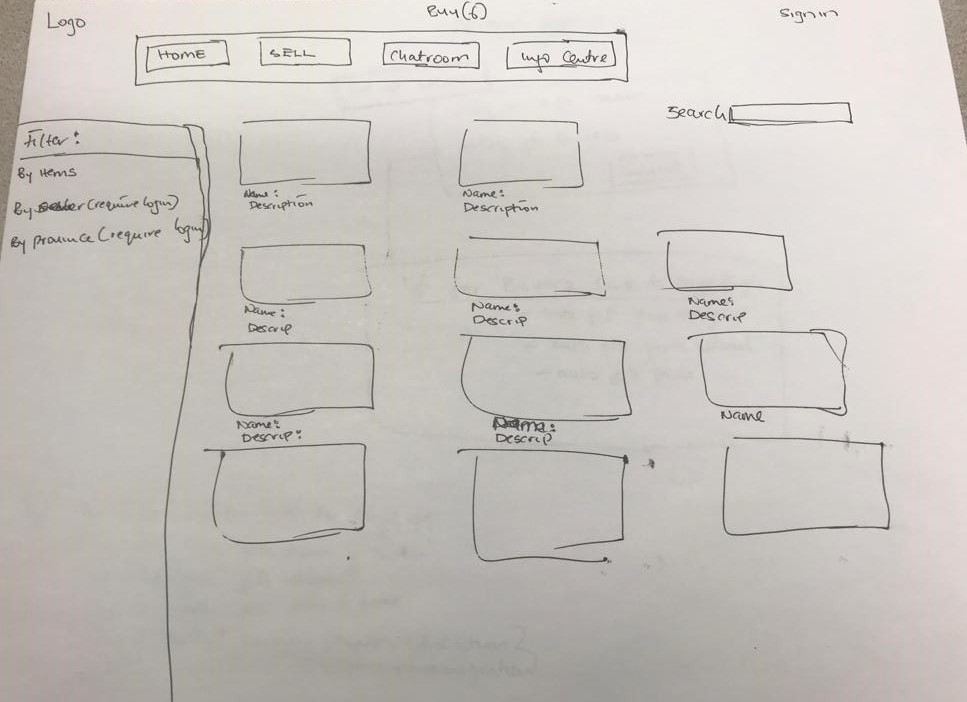 Logo
Buy(6)
Sign in
HOME
SELL
Chatroom
Info Centre
Search
Filter:
By items
By (require login)
By province (require login)
Name:
Description
Name:
Description
Name:
Descrip
Name:
Descrip
Name:
Descrip
Name:
Descrip:
Name:
Descrip
Name